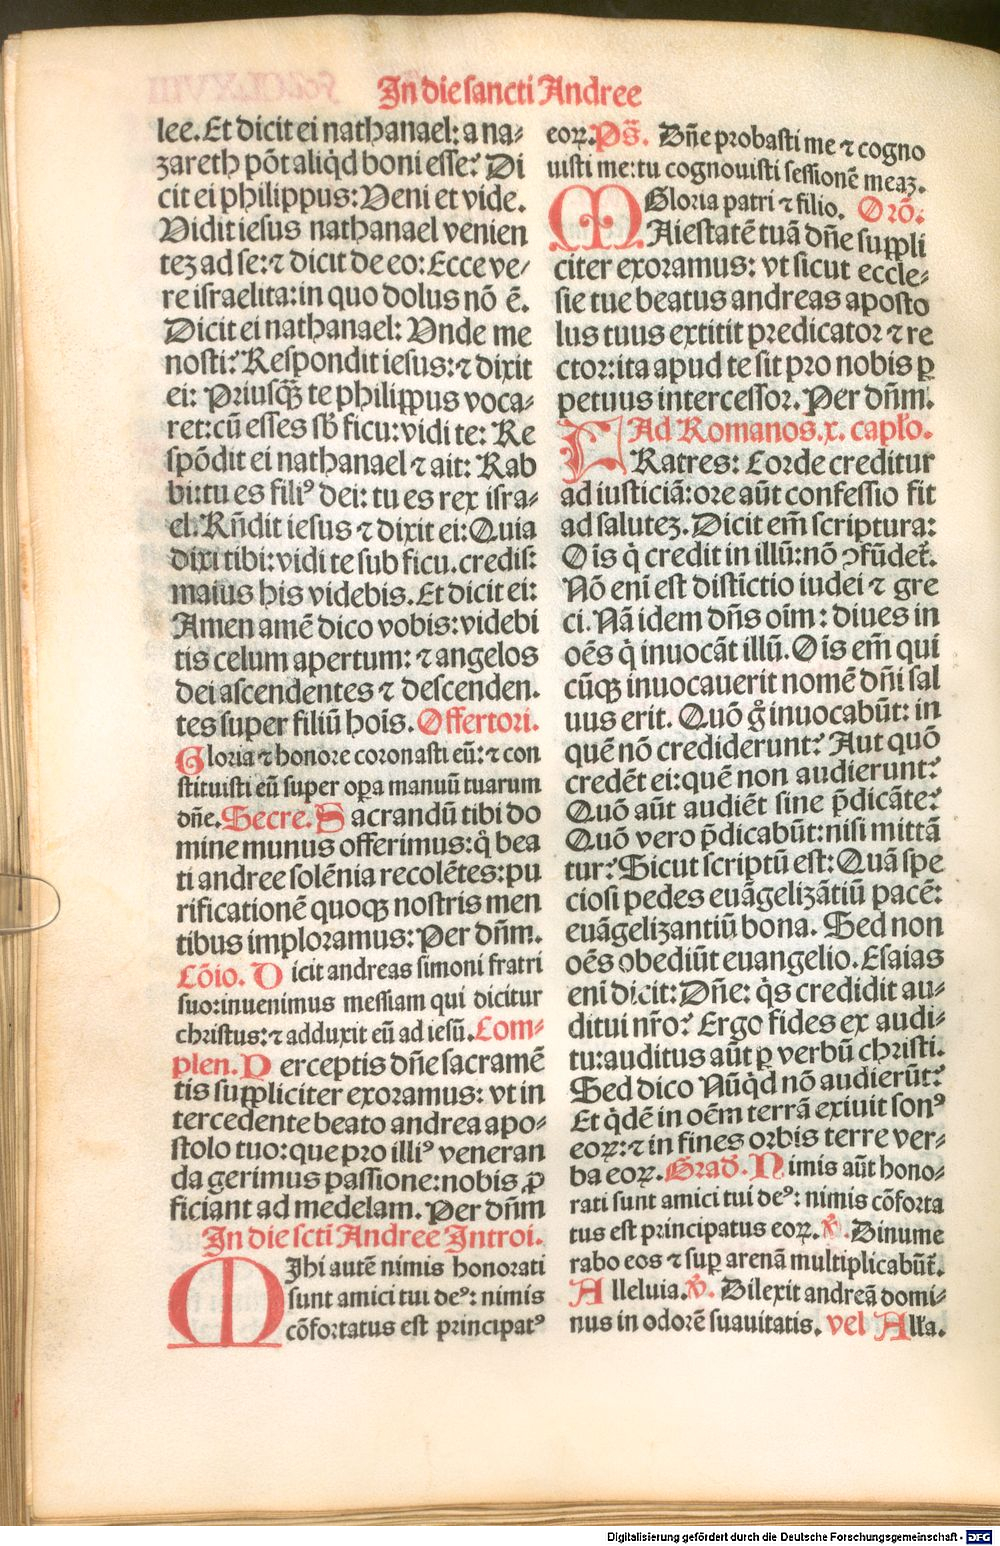 In die sancti Andree
lee. Et dicit ei nathanael: a na⸗
zareth põt aliq̇d boni esse? Di
cit ei philippus: Veni et vide.
Vidit iesus nathanael venien
teꝫ ad se: ⁊ dicit de eo: Ecce ve⸗
re israelita: in quo dolus nõ ẽ.
Dicit ei nathanael: Vnde me
nosti? Respondit iesus: ⁊ dixit
ei: Priusqꝫ te philippus voca⸗
ret: cũ esses sb̃ ficu: vidi te: Re
spõdit ei nathanael ⁊ ait: Rab
bi: tu es filiꝰ dei: tu es rex isra⸗
el. Rñdit iesus ⁊ dixit ei: Quia
dixi tibi: vidi te sub ficu. credis:
maius his videbis. Et dicit ei:
Amen amẽ dico vobis: videbi
tis celum apertum: ⁊ angelos
dei ascendentes ⁊ descenden.
tes super filiũ hoĩs. Offertori.
Gloria ⁊ honore coronasti eũ: ⁊ con
stituisti eũ super oꝑa manuũ tuarum
dñe. Secre. Sacrandũ tibi do
mine munus offerimus: q̊ bea
ti andree solẽnia recolẽtes: pu
rificationẽ quoqꝫ nostris men
tibus imploramus: Per dñm.
Cõio. Dicit andreas simoni fratri
suo: inuenimus messiam qui dicitur
christus: ⁊ adduxit eũ ad iesũ. Com⸗
plen. Perceptis dñe sacramẽ
tis suppliciter exoramus: vt in
tercedente beato andrea apo⸗
stolo tuo: que pro illiꝰ veneran
da gerimus passione: nobis ꝓ
ficiant ad medelam. Per dñm
In die scti Andree Introi.
Mihi autẽ nimis honorati
sunt amici tui deꝰ: nimis
cõfortatus est principatꝰ
eoꝝ. Ps̃. Dñe probasti me ⁊ cogno
uisti me: tu cognouisti sessionẽ meaꝫ.
Gloria patri ⁊ filio. Orõ.
Maiestatẽ tuã dñe suppli
citer exoramus: vt sicut eccle⸗
sie tue beatus andreas aposto
lus tuus extitit predicator ⁊ re
ctor: ita apud te sit pro nobis ꝑ
petuus intercessor. Per dñm.
Ad Romanos. x. capło.
Fratres: Corde creditur
ad iusticiã: ore aũt confessio fit
ad saluteꝫ. Dicit em̃ scriptura:
Oĩs q̇ credit in illũ: nõ ꝯfũdet̃.
Nõ enĩ est distĩctio iudei ⁊ gre
ci. Nã idem dñs oĩm: diues in
oẽs q̇ inuocãt illũ. Oĩs em̃ qui
cũqꝫ inuocauerit nomẽ dñi sal
uus erit. Quõ g̊ inuocabũt: in
quẽ nõ crediderunt? Aut quõ
credẽt ei: quẽ non audierunt?
Quõ aũt audiẽt sine p̃dicãte?
Quõ vero p̃dicabũt: nisi mittã
tur? Sicut scriptũ est: Quã spe
ciosi pedes euãgelizãtiũ pacẽ:
euãgelizantiũ bona. Sed non
oẽs obediũt euangelio. Esaias
enĩ dicit: Dñe: q̇s credidit au⸗
ditui nr̃o? Ergo fides ex audi⸗
tu: auditus aũt ꝑ verbũ christi.
Sed dico Nũq̇d nõ audierũt?
Et q̇dẽ in oẽm terrã exiuit sonꝰ
eoꝝ: ⁊ in fines orbis terre ver⸗
ba eoꝝ. Grad̃. Nimis aũt hono⸗
rati sunt amici tui deꝰ: nimis cõforta
tus est principatus eoꝝ. ℣. Dinume
rabo eos ⁊ suꝑ arenã multiplicabũt̃.
Alleluia. ℣. Dilexit andreã domi⸗
nus in odorẽ suauitatis. vel Alła.
Digitalisierung gefördert durch die Deutsche Forschungsgemeinschaft - DFG